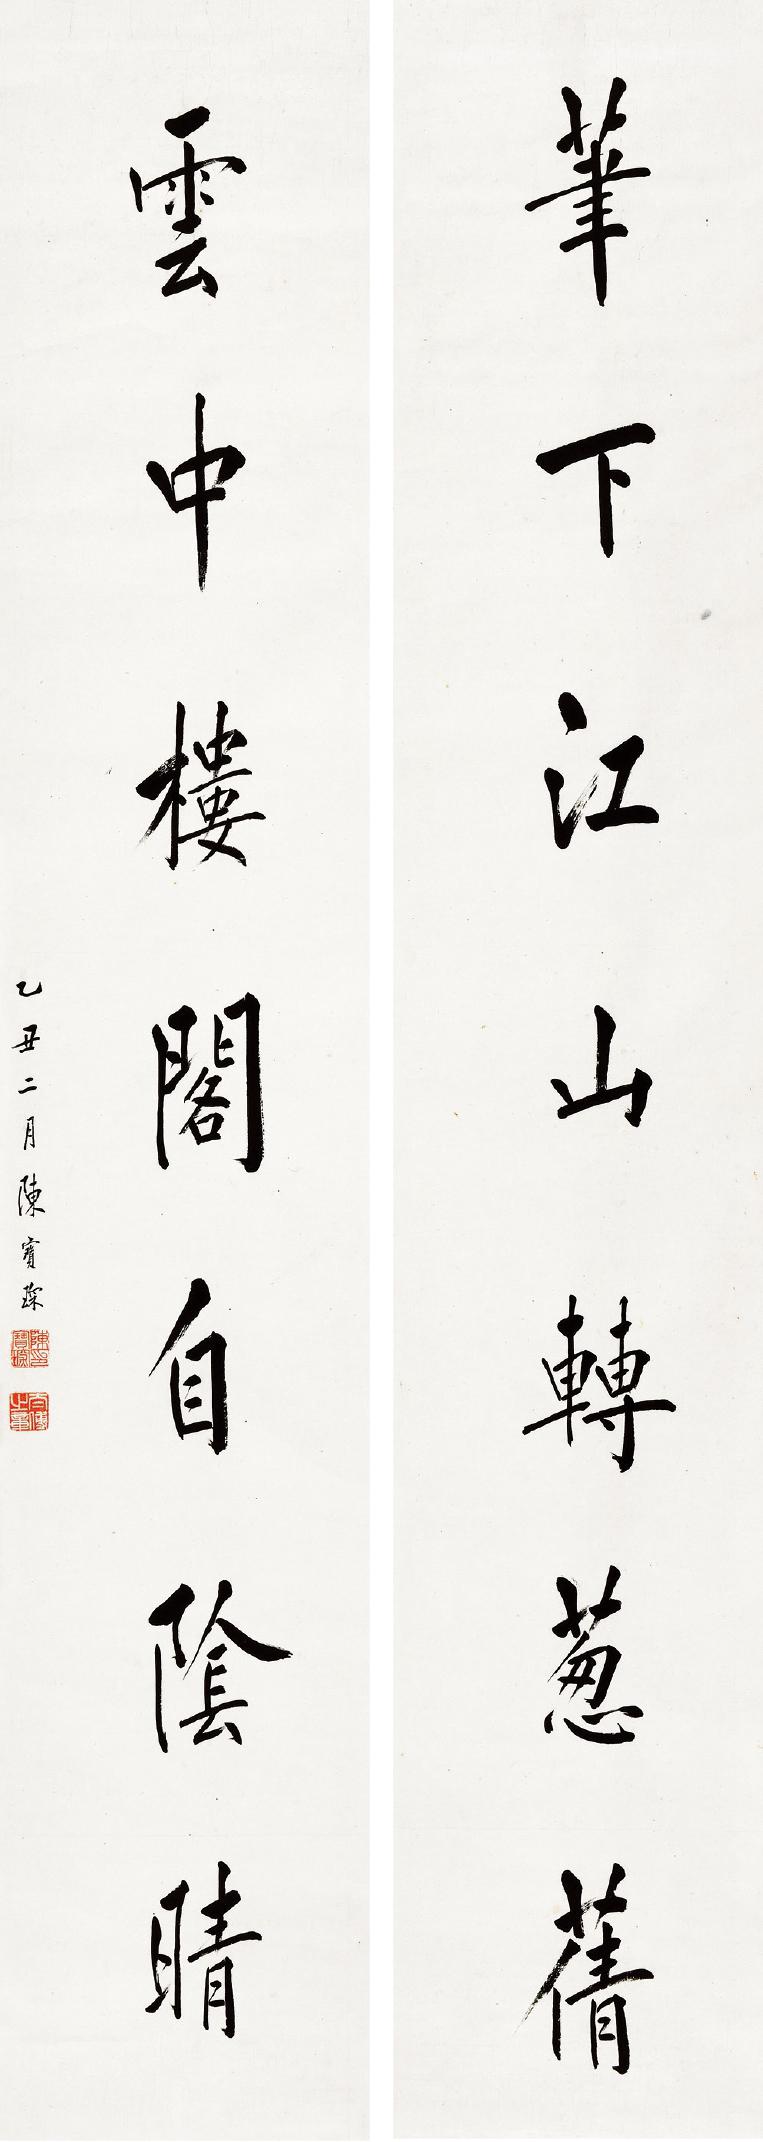 筆下江山轉葱蒨
雲中樓閣自陰晴
乙丑二月陳寶琛
陳寶琛印
太傅之章